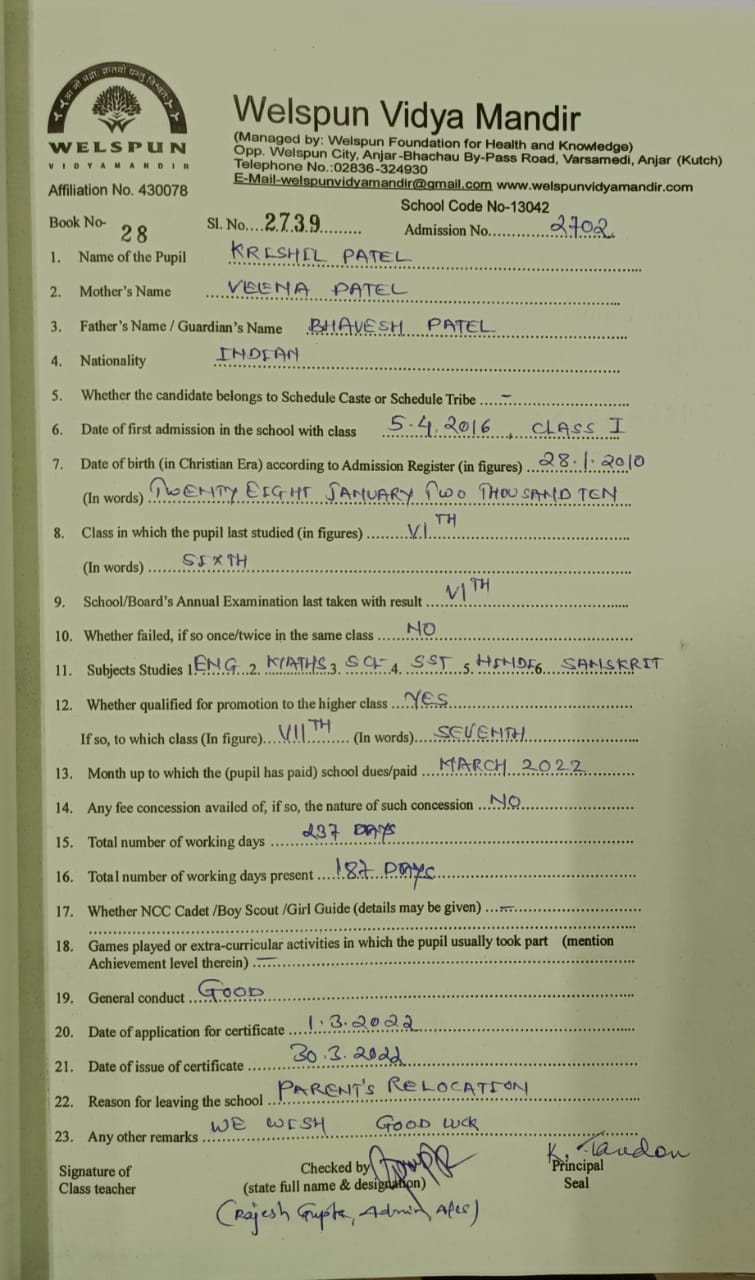 आ नो भद्राः क्रतवो यन्तु विश्वतः
WELSPUN
VIDYA MANDIR
Affiliation No. 430078
Welspun Vidya Mandir
(Managed by: Welspun Foundation for Health and Knowledge)
Opp. Welspun City, Anjar-Bhachau By-Pass Road, Varsamedi, Anjar (Kutch)
Telephone No.:02836-324930
E-Mail-welspunvidyamandir@gmail.com www.welspunvidyamandir.com
School Code No-13042
Book No- 28 Sl. No....2739........ Admission No............2702
1. Name of the Pupil KRISHIL PATEL
2. Mother's Name VEENA PATEL
3. Father's Name / Guardian's Name BHAVESH PATEL
4. Nationality INDIAN
5. Whether the candidate belongs to Schedule Caste or Schedule Tribe -
6. Date of first admission in the school with class 5.4.2016, CLASS I
7. Date of birth (in Christian Era) according to Admission Register (in figures) 28.1.2010
(In words) TWENTY EIGHT JANUARY TWO THOUSAND TEN
8. Class in which the pupil last studied (in figures) VI TH
(In words) SIXTH
9. School/Board's Annual Examination last taken with result VI TH
10. Whether failed, if so once/twice in the same class NO
11. Subjects Studies 1. ENG 2. MATHS 3. SCI 4. SST 5. HINDI 6. SANSKRIT
12. Whether qualified for promotion to the higher class YES
If so, to which class (In figure) VII TH (In words) SEVENTH
13. Month up to which the (pupil has paid) school dues/paid MARCH 2022
14. Any fee concession availed of, if so, the nature of such concession NO
15. Total number of working days 237 DAYS
16. Total number of working days present 187 DAYS
17. Whether NCC Cadet /Boy Scout /Girl Guide (details may be given) -
18. Games played or extra-curricular activities in which the pupil usually took part (mention
Achievement level therein) -
19. General conduct GOOD
20. Date of application for certificate 1.3.2022
21. Date of issue of certificate 30.3.2022
22. Reason for leaving the school PARENT'S RELOCATION
23. Any other remarks WE WISH GOOD LUCK
K. Tandon
Signature of Checked by Principal
Class teacher (state full name & designation) Seal
(Rajesh Gupta, Admin